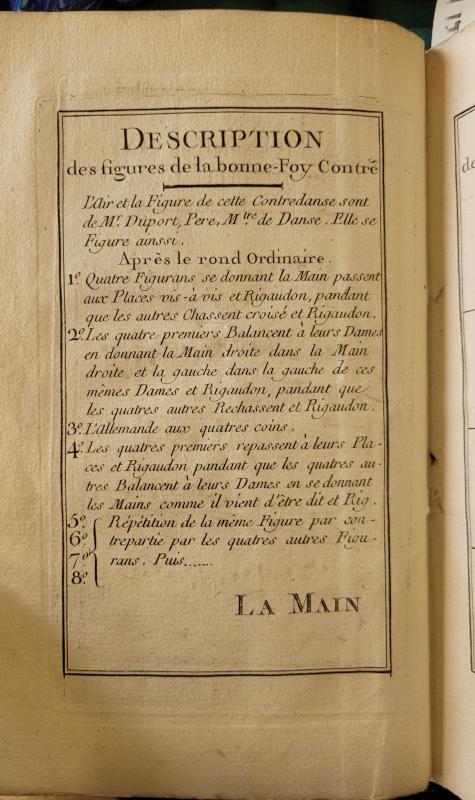 DESCRIPTION
des figures de la bonne-Foy Contrē
L'Air et la Figure de cette Contredanse sont
de Mr. Duport, Pere, Mtre. de Danse. Elle se
Figure ainssi.
Après le rond Ordinaire.
1º. Quatre Figurans se donnant la Main passent
aux Places vis-à vis et Rigaudon, pandant
que les autres Chassent croisé et Rigaudon.
2º. Les quatre premiers Balancent à leurs Dames
en donnant la Main droite dans la Main
droite et la gauche dans la gauche de ces
mêmes Dames et Rigaudon, pandant que
les quatres autres Rechassent et Rigaudon.
3º. L'allemande aux quatres coins.
4º. Les quatres premiers repassent à leurs Pla-
ces et Rigaudon pandant que les quatres au-
tres Balancent à leurs Dames en se donnant
les Mains comme il vient d'être dit et Rig.
5º. Répétition de la même Figure par con-
6º. trepartie par les quatres autres Figu-
7º. rans. Puis.......
8º.
LA MAIN
de